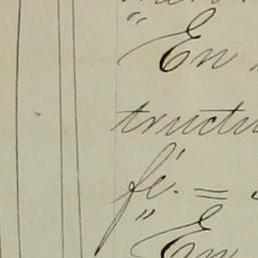 " En
tructu
fé. =
" En